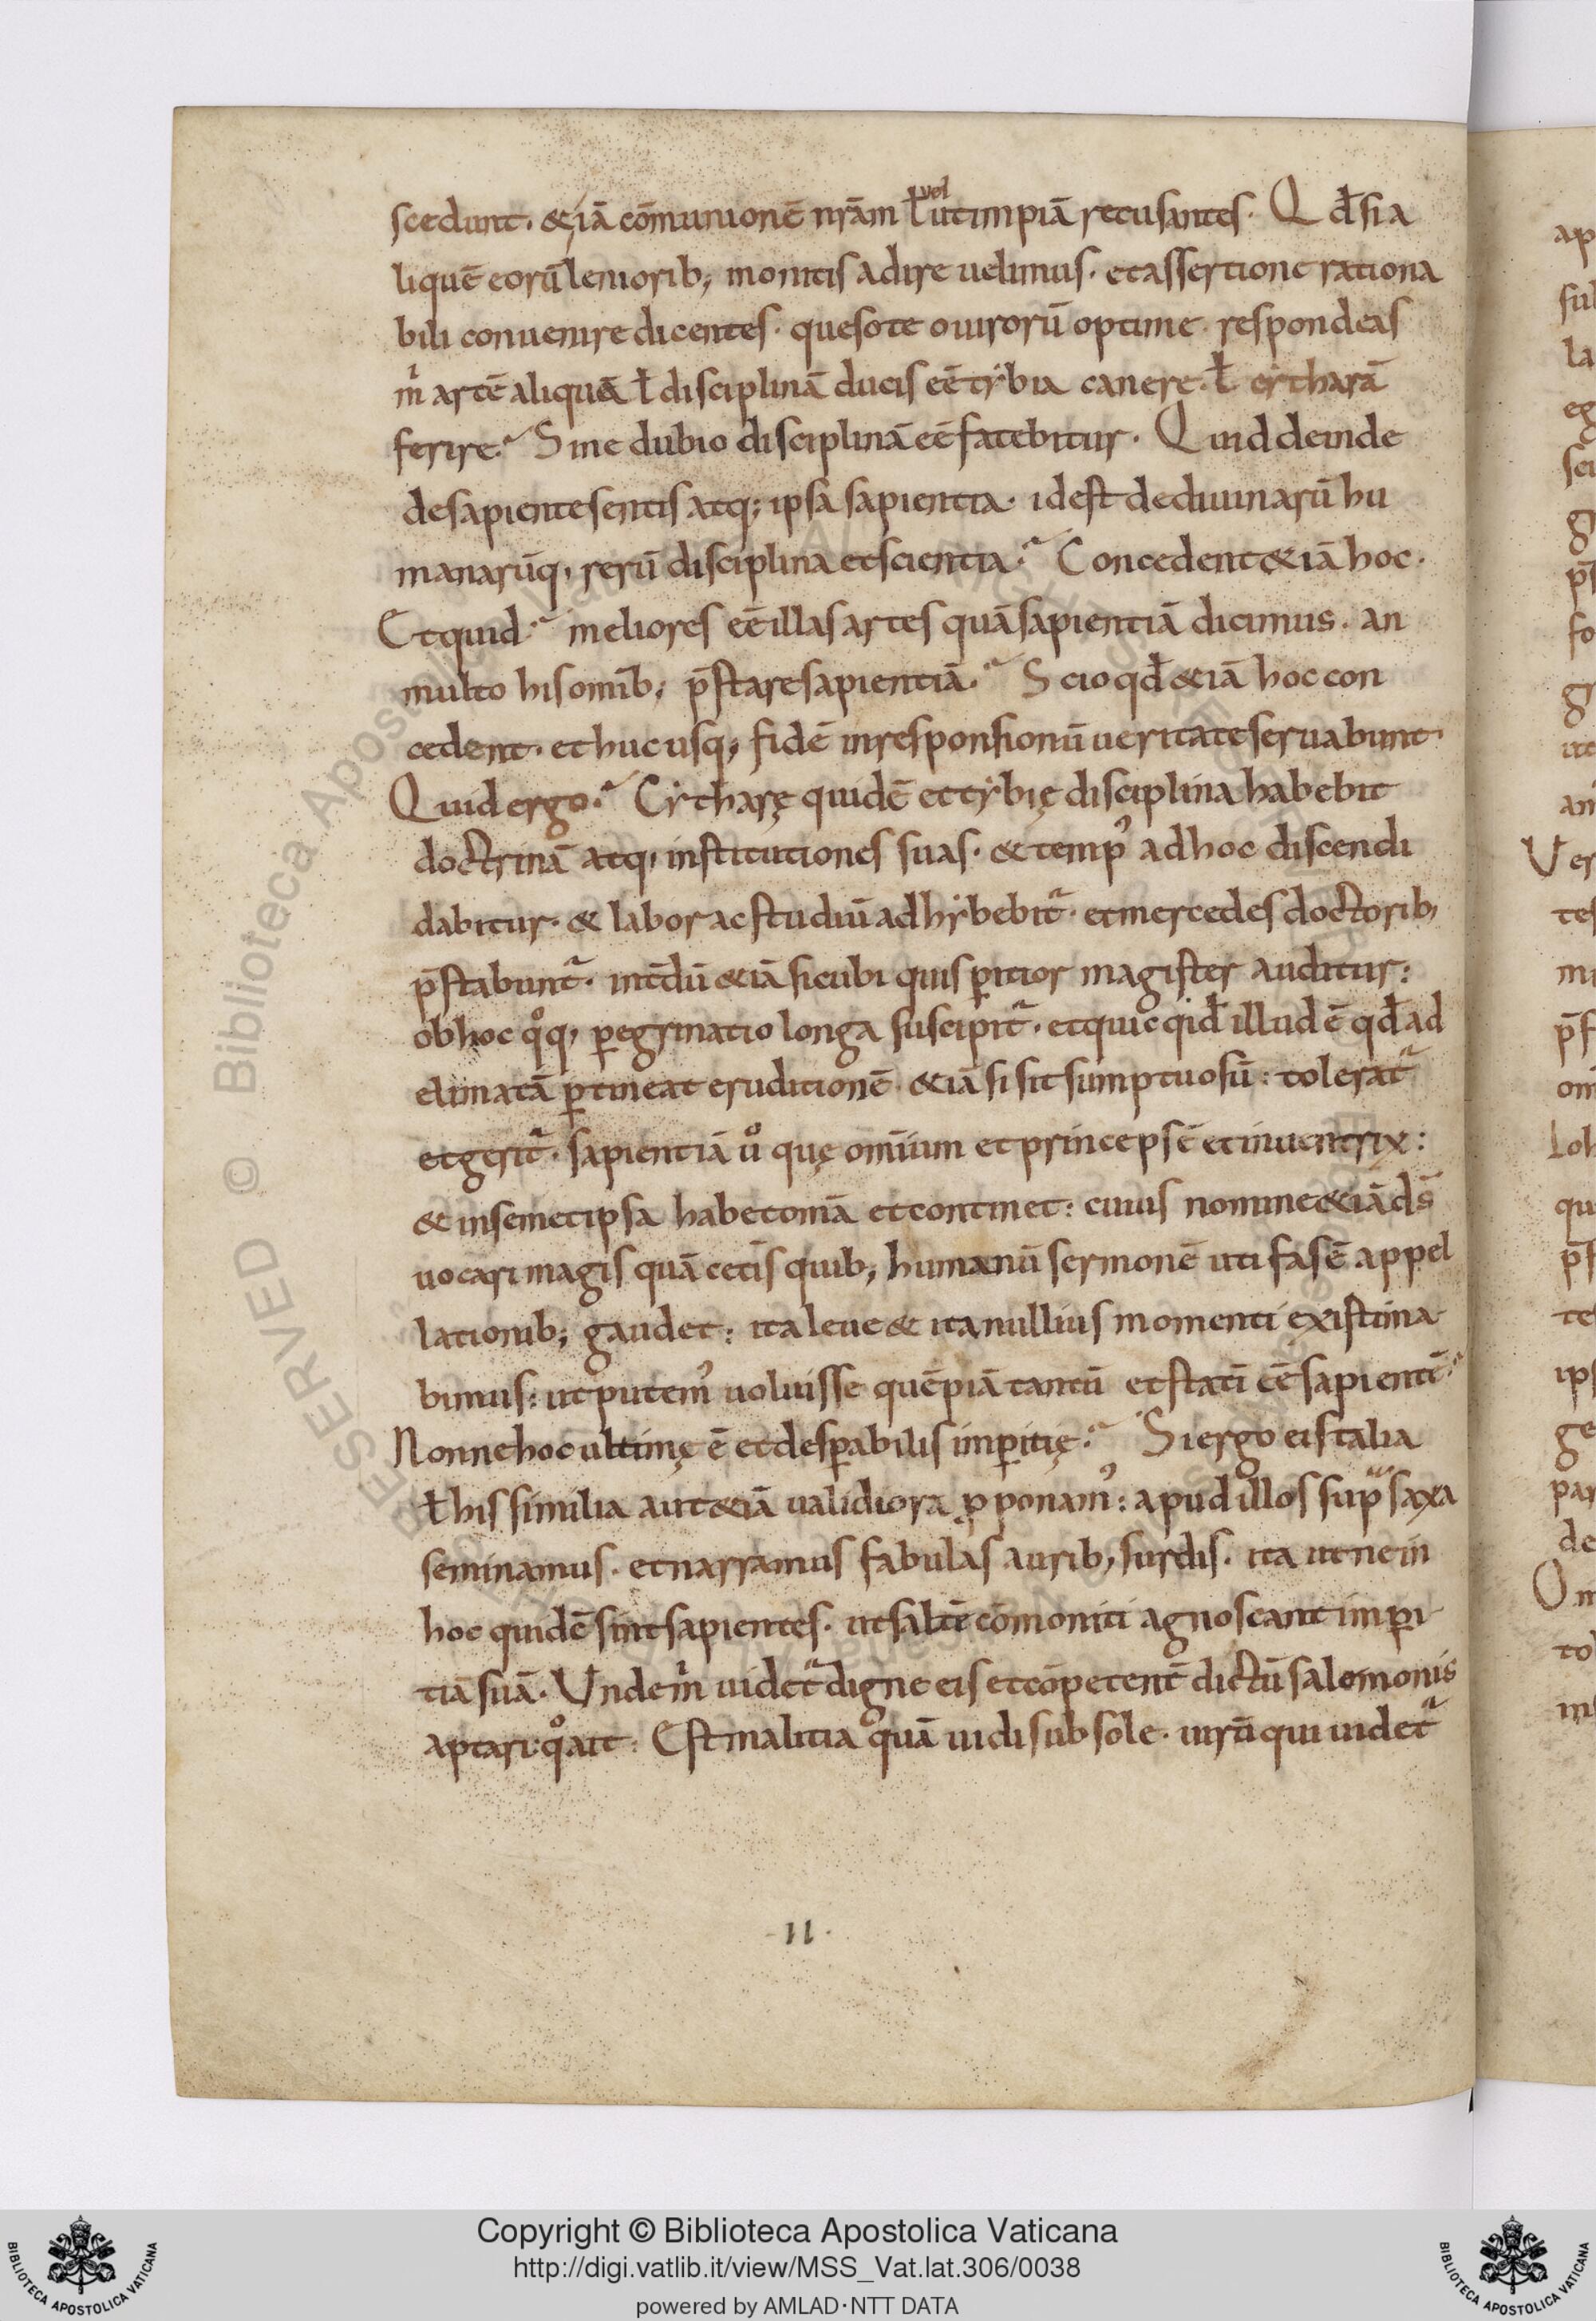 scedunt. &iā cōmunionē nr̄am ł ut impiā recusantes. Qđ si a
vel
liquē eorū leniorib; monitis adire uelimus. et assertione rationa
bili conuenire dicentes. queso te o uirorū optime. respondeas
m̊ artē aliquā ł disciplinā ducis eē tẏbia canere. ł cẏtharā
ferire? Sine dubio disciplinā eē fatebitur. Quid deinde
de sapiente sentis atq; ipsa sapientia. id est de diuinarū hu
manarūq; rerū disciplina et scientia? Concedent &iā hoc.
Et quid? meliores eē illas artes quā sapientiā dicimus. an
multo his omīb; p̄stare sapientiā? Scio qđ &iā hoc con
cedent. et huc usq; fidē in responsionū ueritate seruabunt.
Quid ergo? Cẏtharę quidē et tẏbię disciplina habebit
doctrinā atq; institutiones suas. & temp᾽ ad hoc discendi
dabitur. & labor ac studiū adhẏbebit᷑. et mercedes doctorib;
p̄stabunt᷑. int̄dū &iā sicubi quis ꝑitior magister auditur:
ob hoc qͦq; ꝑegrinatio longa suscipit᷑. et quicqid illud ē qđ ad
elimatā ꝑtineat eruditionē. &iā si sit sumptuosū: tolerat᷑
et gerit᷑. sapientiā uͦ quę omīum et princeps ē et inuentrix:
& in semetipsa habet omā et continet: cuius nomine &iā ds̄
uocari magis quā cet̄is quib; humanū sermonē uti fas ē appel
lationib; gaudet: ita leue & ita nullius momenti existima
bimus: ut putem᾽ uoluisse quēpiā tantū et statī eē sapientē?
Nonne hoc ultimę ē et desꝑabilis imꝑitię? Si ergo eis talia
ł his similia aut &iā ualidiora ꝓponam᾽: apud illos sup̄ saxa
seminamus. et narramus fabulas aurib; surdis. ita ut ne in
hoc quidē sint sapientes. ut saltē cōmoniti agnoscant imꝑi
tiā suā. Unde m̊ uidet᷑ digne eis et cōpetent̄ dictū salomonis
aptari. qͦ ait: Est malitia quā uidi sub sole. uirū qui uidet᷑
·II·
ap
la
Ver
tes
qu
te
ips
ge
par
de
Om
to
© Biblioteca Apostolica Vaticana
RESERVED
Copyright © Biblioteca Apostolica Vaticana
http://digi.vatlib.it/view/MSS_Vat.lat.306/0038
powered by AMLAD·NTT DATA
BIBLIOTECA APOSTOLICA VATICANA
BIBLIOTECA APOSTOLICA VATICANA